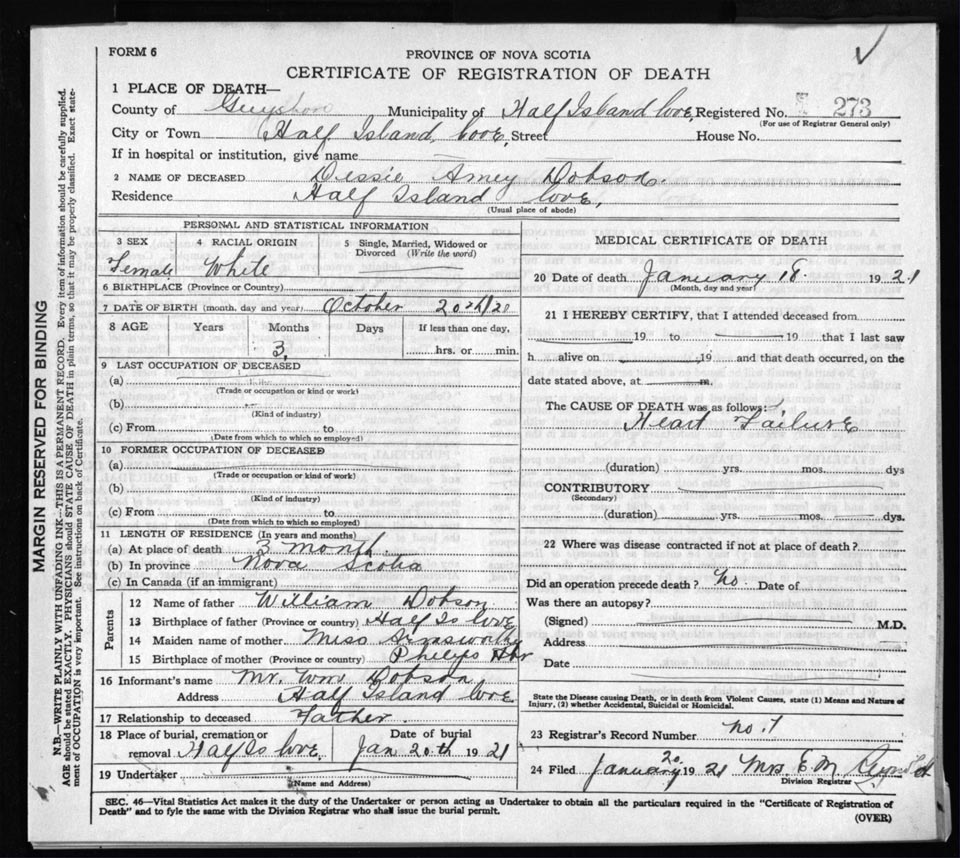 FORM 6
PROVINCE OF NOVA SCOTIA
CERTIFICATE OF REGISTRATION OF DEATH
1 PLACE OF DEATH—
County of Guysboro Municipality of Half Island Cove, Registered No. 273
(For use of Registrar General only)
City or Town Half Island, Cove, Street House No.
If in hospital or institution, give name
2 NAME OF DECEASED Dessie Amey Dobson.
Residence Half Island Cove,
(Usual place of abode)
PERSONAL AND STATISTICAL INFORMATION
3 SEX 4 RACIAL ORIGIN 5 Single, Married, Widowed or Divorced (Write the word)
Female White
6 BIRTHPLACE (Province or Country)
7 DATE OF BIRTH (month, day and year) October 20th/20
8 AGE Years Months Days If less than one day,
3, hrs. or min.
9 LAST OCCUPATION OF DECEASED
(a)
(Trade or occupation or kind or work)
(b)
(Kind of industry)
(c) From to
(Date from which to which so employed)
10 FORMER OCCUPATION OF DECEASED
(a)
(Trade or occupation or kind of work)
(b)
(Kind of industry)
(c) From to
(Date from which to which so employed)
11 LENGTH OF RESIDENCE (In years and months)
(a) At place of death 3 month
(b) In province Nova Scotia
(c) In Canada (if an immigrant)
Parents
12 Name of father William Dobson
13 Birthplace of father (Province or country) Half Is Cove
14 Maiden name of mother Miss
15 Birthplace of mother (Province or country) Philips Hbr
16 Informant's name Mr. Wm Dobson
Address Half Island Cove
17 Relationship to deceased Father.
18 Place of burial, cremation or removal Half Is Cove, Date of burial Jan 20th 1921
19 Undertaker
(Name and Address)
MEDICAL CERTIFICATE OF DEATH
20 Date of death January 18. 1921
(Month, day and year)
21 I HEREBY CERTIFY, that I attended deceased from
19 to 19 that I last saw
h alive on 19 and that death occurred, on the
date stated above, at m.
The CAUSE OF DEATH was as follows:
Heart Failure
(duration) yrs. mos. dys
CONTRIBUTORY
(Secondary)
(duration) yrs. mos. dys.
22 Where was disease contracted if not at place of death?
Did an operation precede death? No. Date of
Was there an autopsy?
(Signed) M.D.
Address
Date
State the Disease causing Death, or in death from Violent Causes, state (1) Means and Nature of
Injury, (2) whether Accidental, Suicidal or Homicidal.
23 Registrar's Record Number No. 1
24 Filed January 20, 1921 Mrs. E. M.
Division Registrar
SEC. 46—Vital Statistics Act makes it the duty of the Undertaker or person acting as Undertaker to obtain all the particulars required in the "Certificate of Registration of
Death" and to fyle the same with the Division Registrar who shall issue the burial permit.
(OVER)
MARGIN RESERVED FOR BINDING
N.B.—WRITE PLAINLY WITH UNFADING INK—THIS IS A PERMANENT RECORD. Every item of information should be carefully supplied.
AGE should be stated EXACTLY. PHYSICIANS should STATE CAUSE OF DEATH in plain terms, so that it may be properly classified. Exact state-
ment of OCCUPATION is very important. See instructions on back of Certificate.